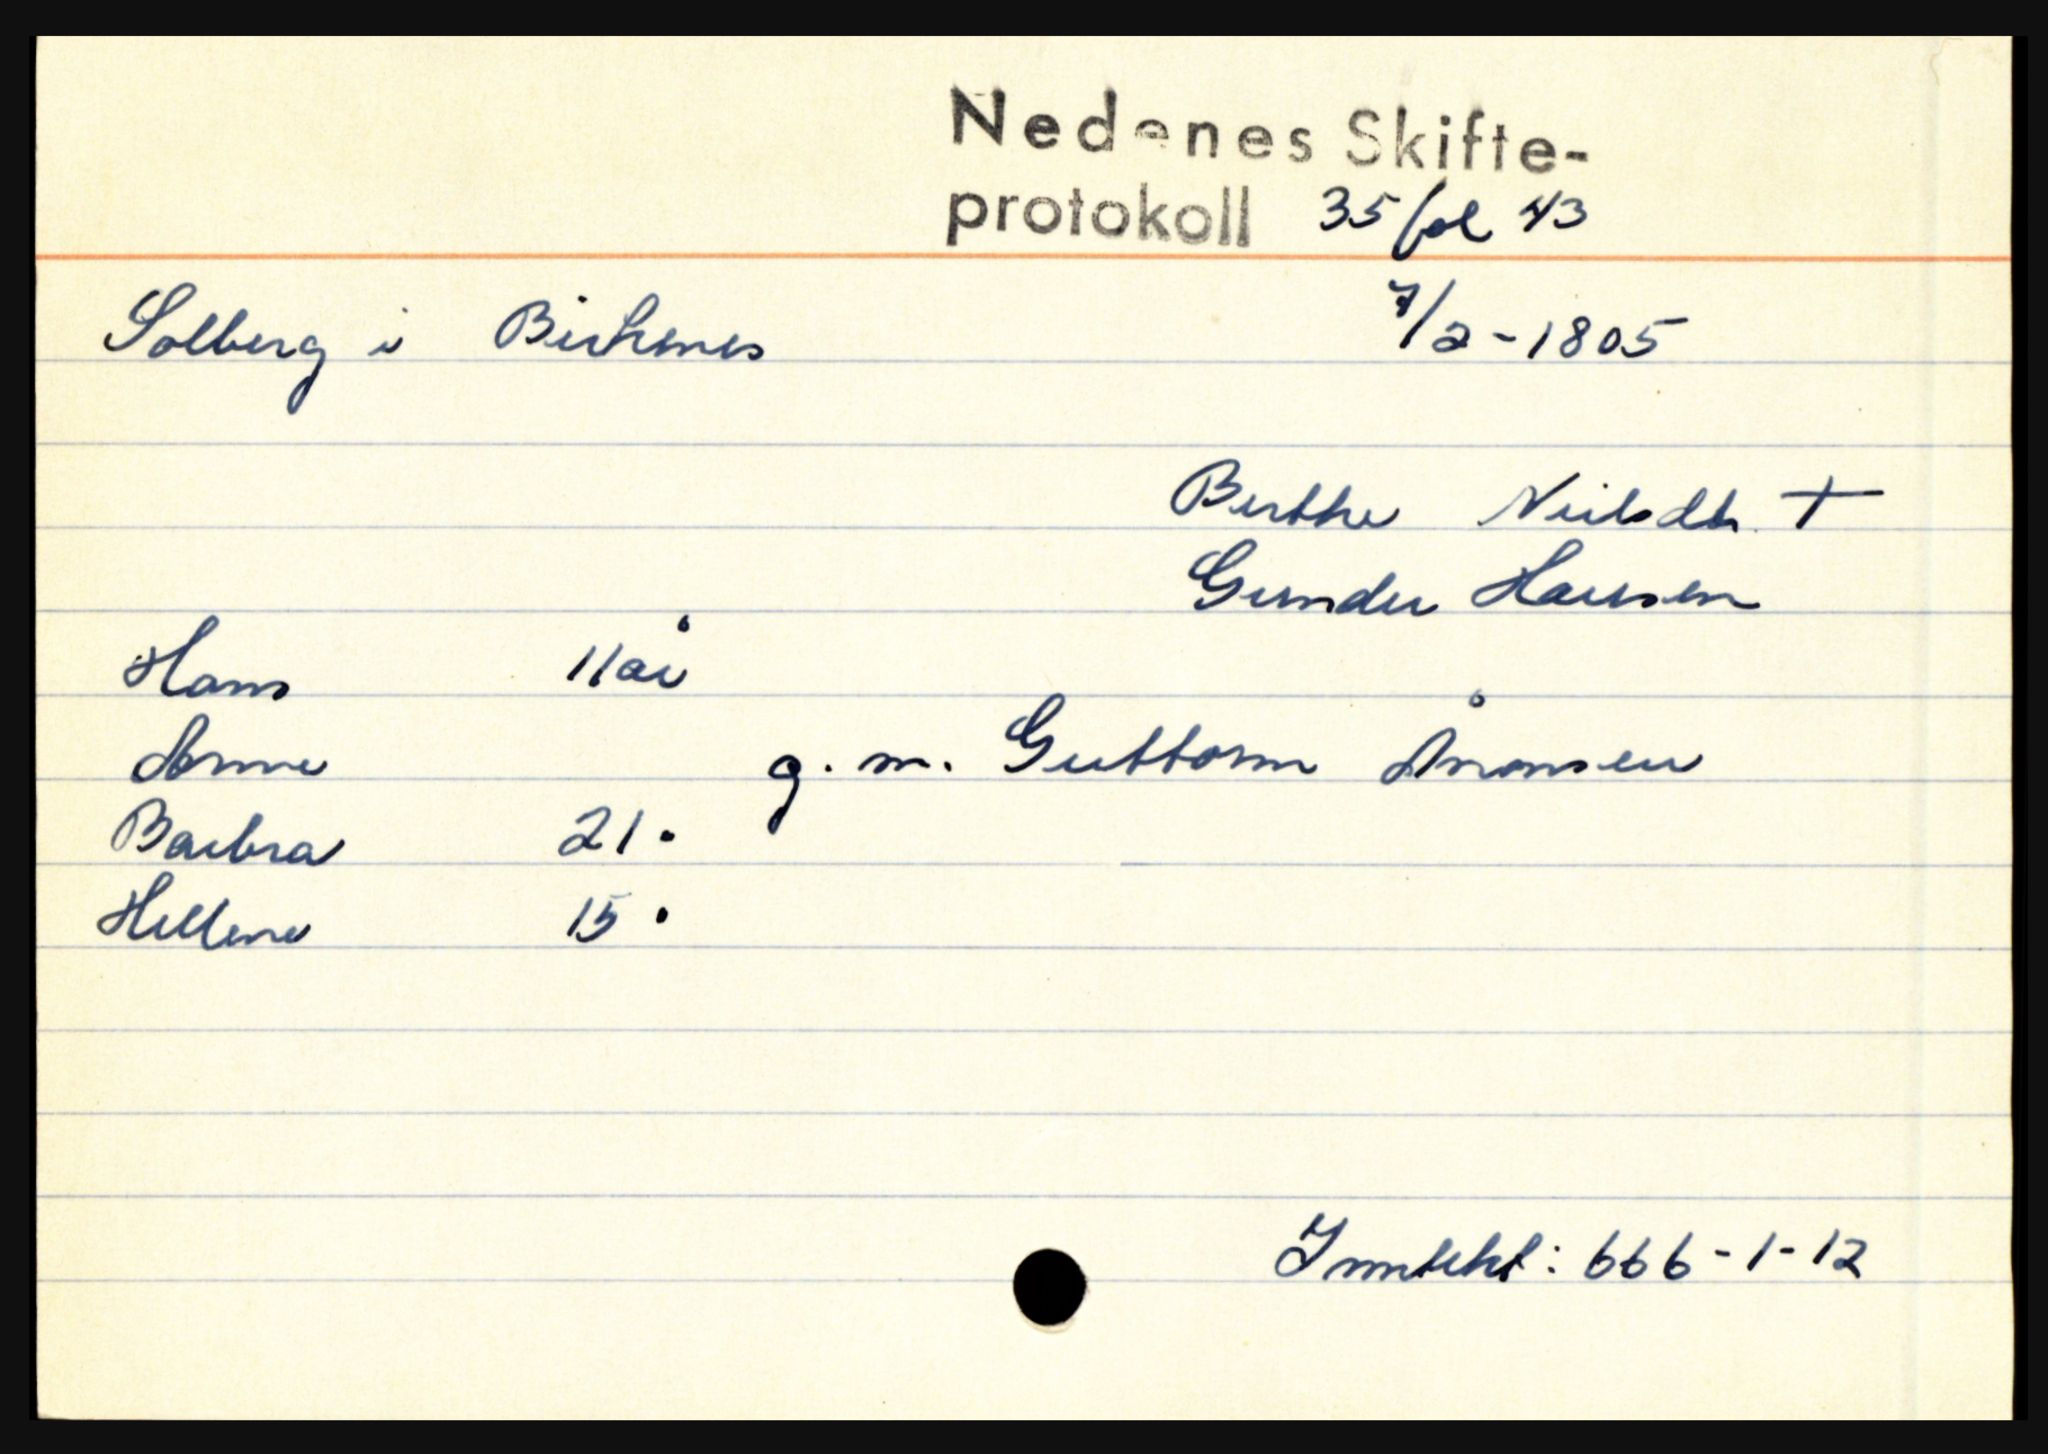 Nedenes Skifte-
protokoll 35 fol 43
Solberg i Birkenes 7/2-1805
Berthe Neilsdtr. †
Gunder Hansen
Hans 11 år
Anne g. m. Guttorm Åronsen
Barbra 21 •
Hellene 15 •
Inntekt: 666-1-12